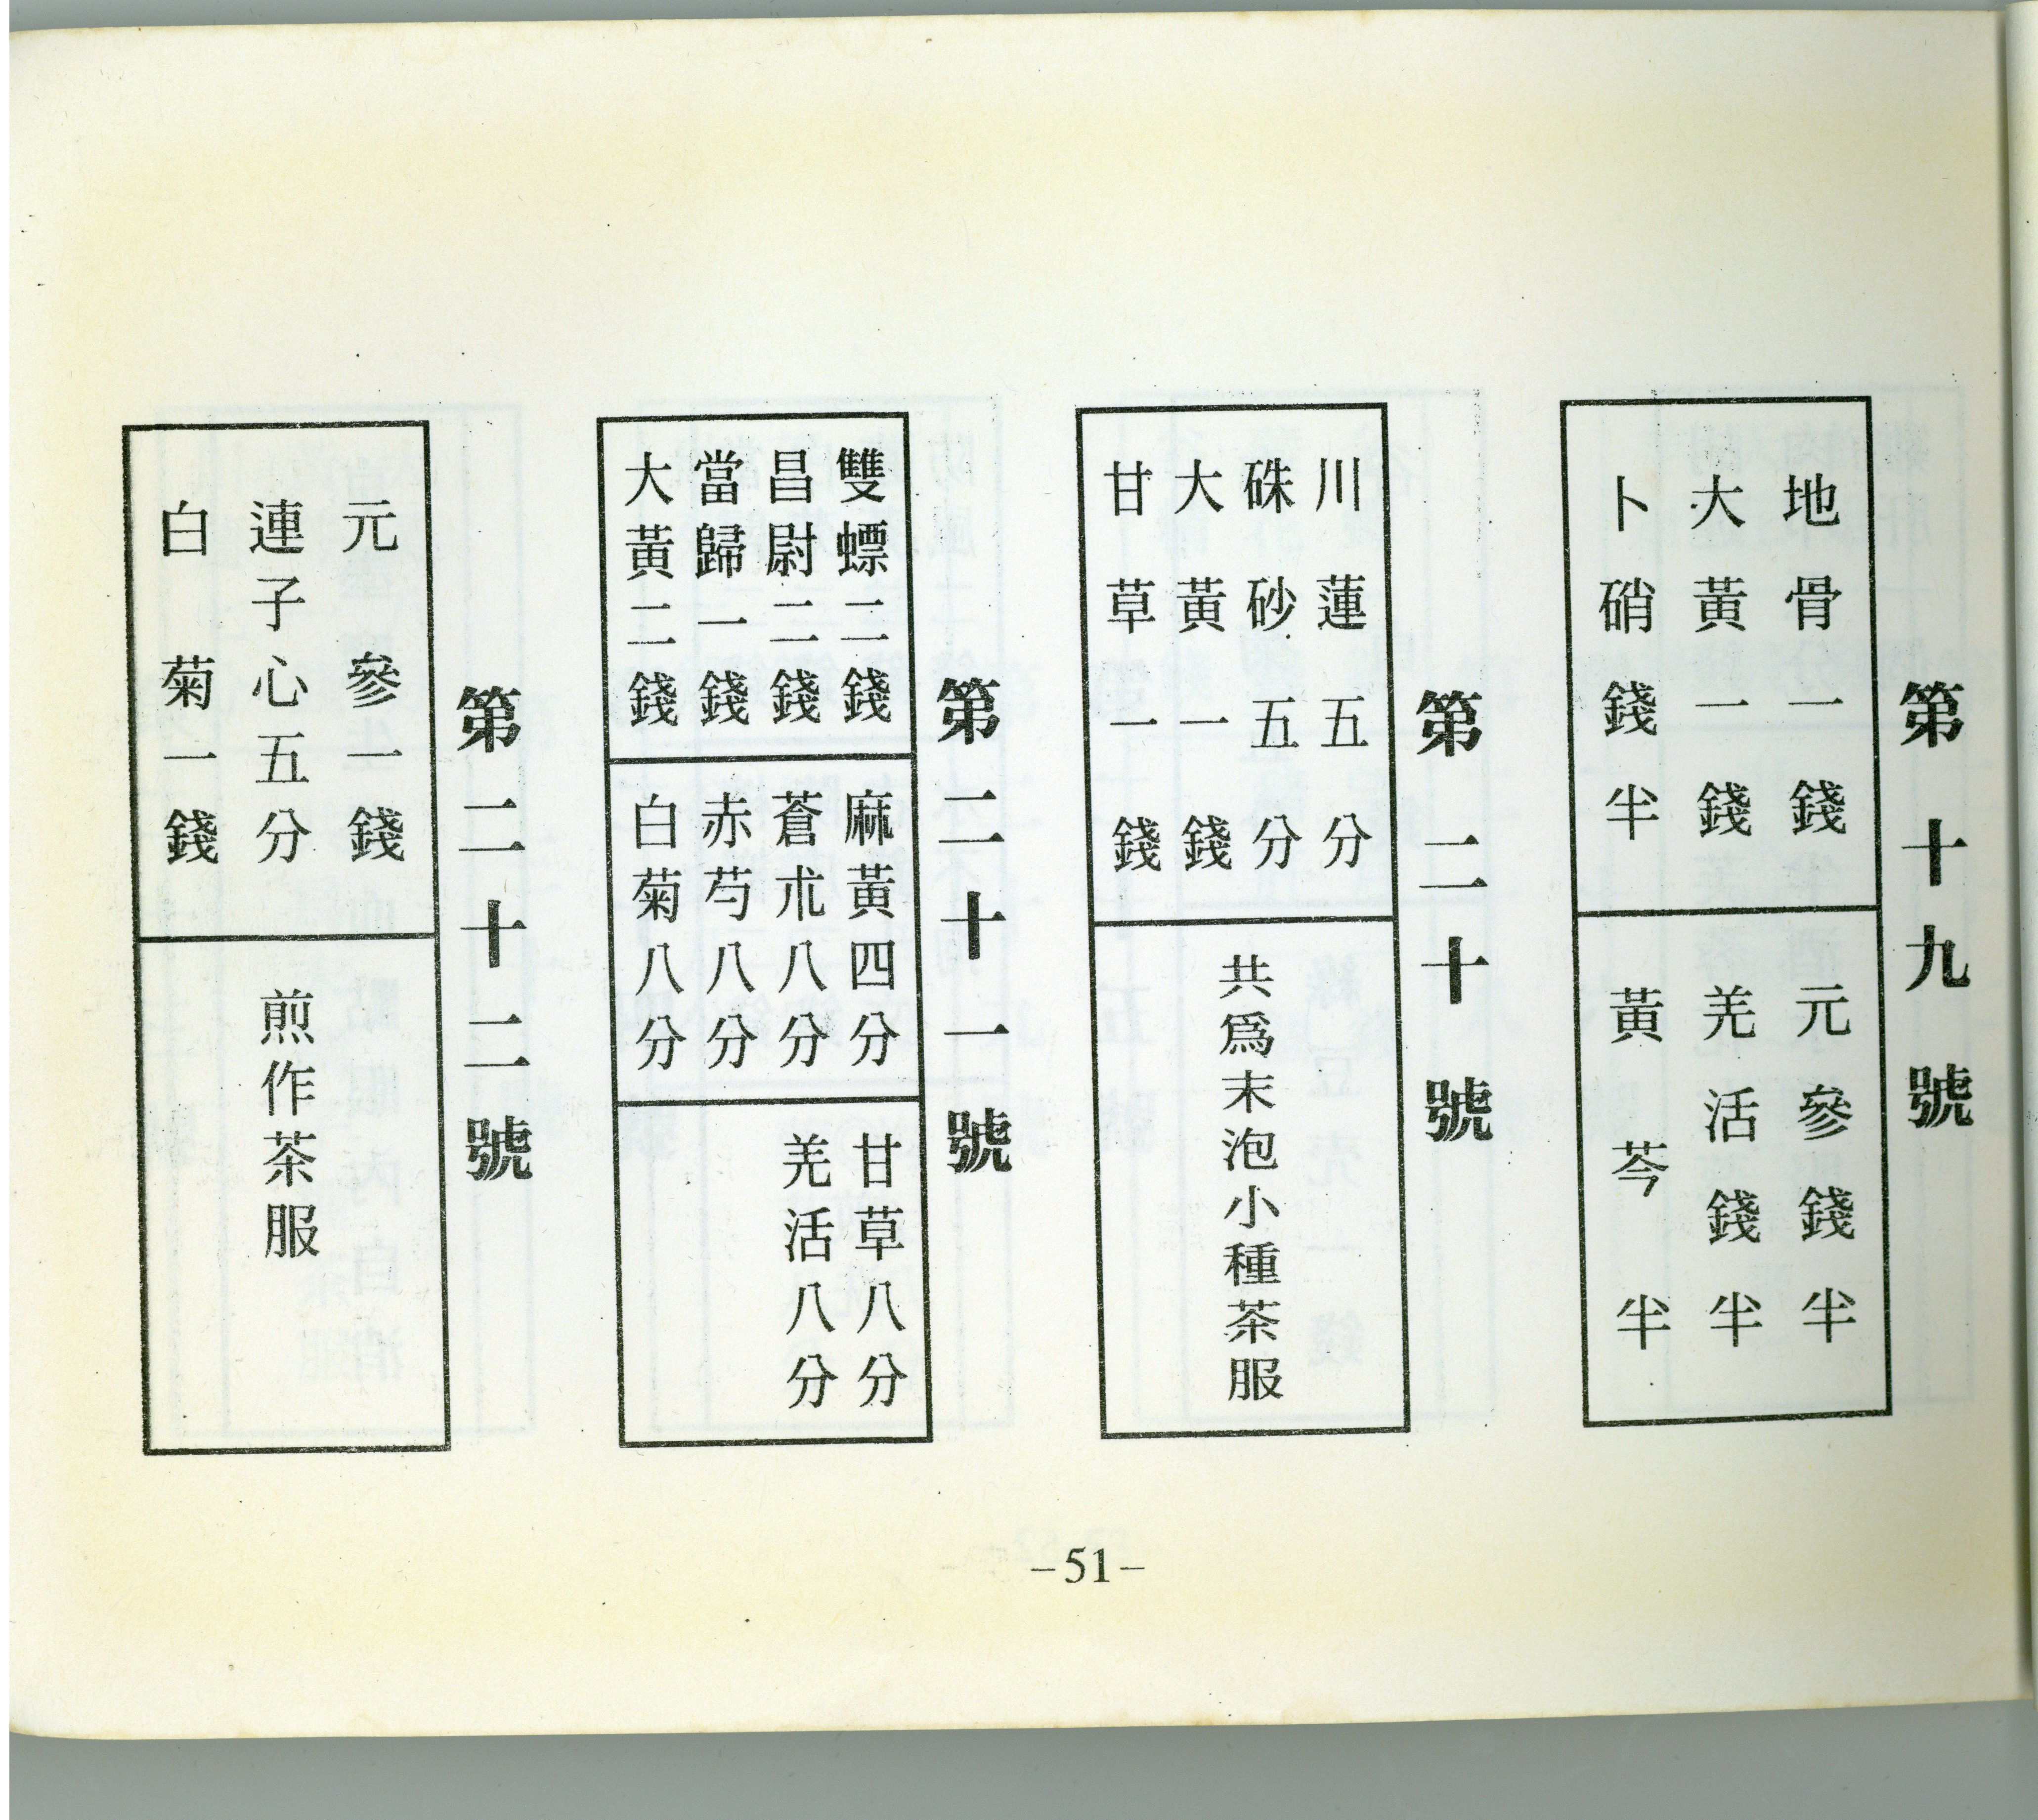 第十九號
地骨一錢
大黃一錢
卜硝錢半
元參錢半
羌活錢半
黃芩半
第二十號
川蓮五分
硃砂五分
大黃一錢
甘草一錢
共爲末泡小種茶服
第二十一號
雙螵二錢
昌尉二錢
當歸一錢
大黃二錢
麻黃四分
蒼朮八分
赤芍八分
白菊八分
甘草八分
羌活八分
第二十二號
元參一錢
連子心五分
白菊一錢
煎作茶服
–51–